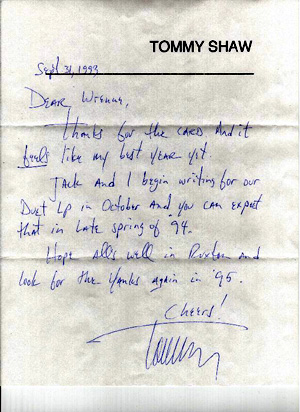 TOMMY SHAW
Sept 31, 1993
Dear
Thanks for the card and it
feels like my best year yet.
Jack and I begin writing for our
Duet LP in October and you can expect
that in late spring of 94.
Hope all's well in Ruxton and
look for the Yanks again in '95.
Cheers!
Tommy